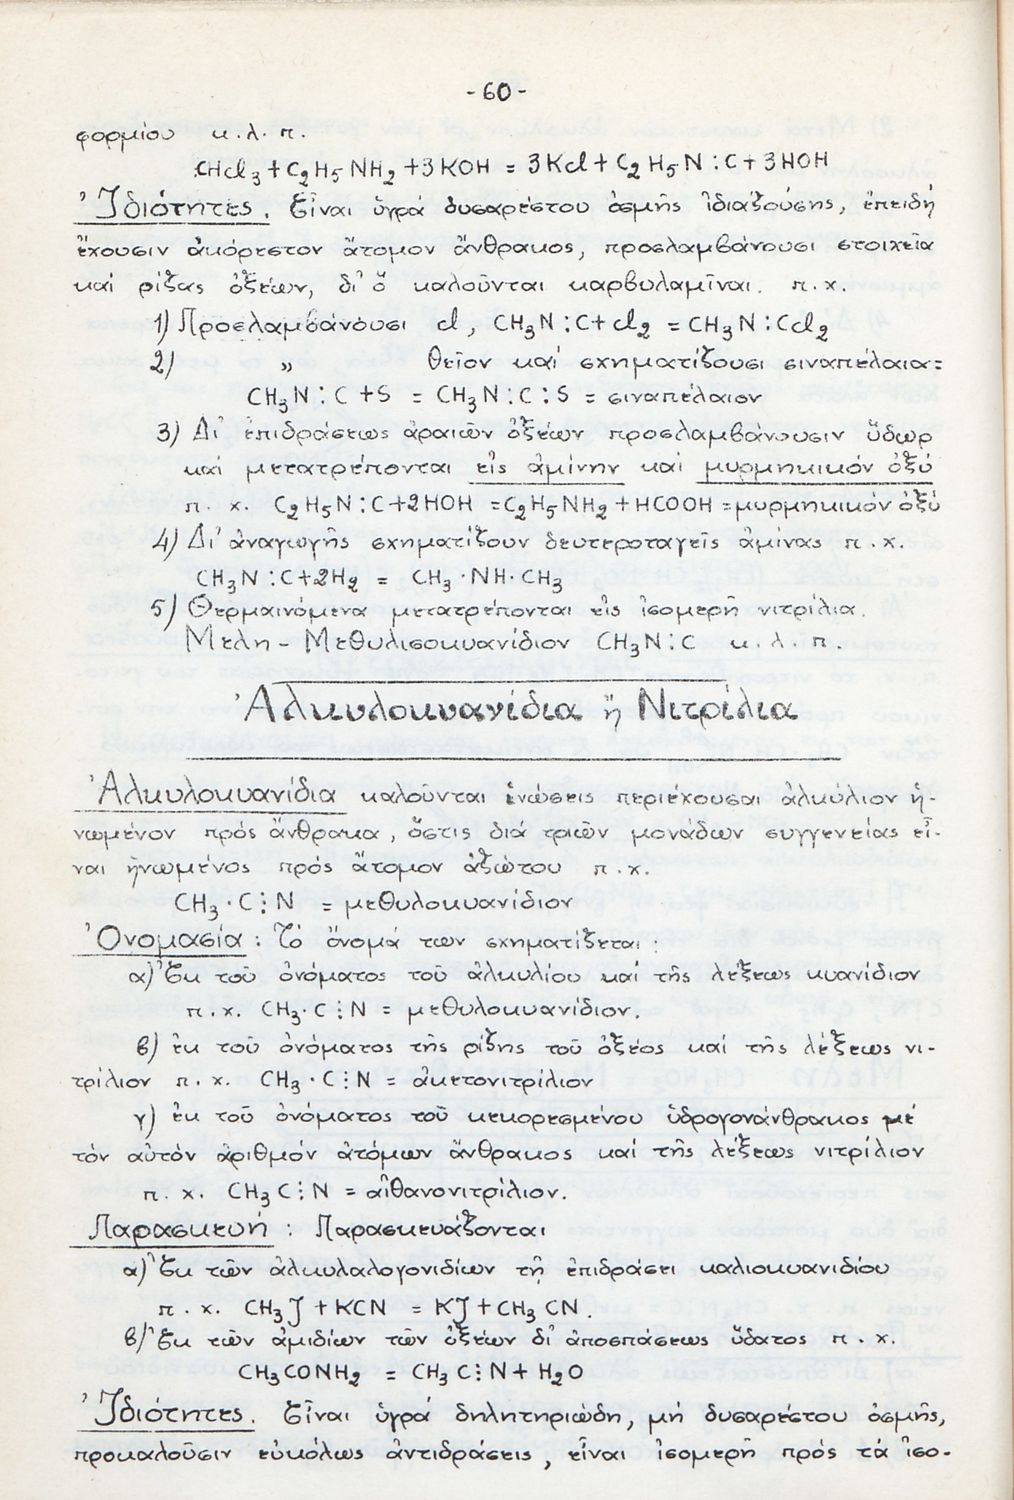 -60-
φορμίου κ.λ.π.
CHCl₃ + C₂H₅NH₂ + 3KOH = 3KCl + C₂H₅N⋮C + 3HOH
Ἰδιότητες. Εἶναι ὑγρά δυσαρέστου ὀσμῆς ἰδιαζούσης, ἐπειδή
ἔχουσιν ἀκόρεστον ἄτομον ἄνθρακος, προσλαμβάνουσι στοιχεῖα
καί ρίζας ὀξέων, δι' ὅ καλοῦνται καρβυλαμῖναι. π.χ.
1) Προσλαμβάνουσι cl, CH₃N⋮C + cl₂ = CH₃N⋮Ccl₂
2) „ θεῖον καί σχηματίζουσι σιναπέλαια:
CH₃N⋮C + S = CH₃N⋮C⋮S = σιναπέλαιον
3) Δι' ἐπιδράσεως ἀραιῶν ὀξέων προσλαμβάνουσιν ὕδωρ
καί μετατρέπονται εἰς ἀμίνην καί μυρμηκικόν ὀξύ
π.χ. C₂H₅N⋮C + 2HOH = C₂H₅NH₂ + HCOOH = μυρμηκικόν ὀξύ
4) Δι' ἀναγωγῆς σχηματίζουν δευτεροταγεῖς ἀμίνας π.χ.
CH₃N⋮C + 2H₂ = CH₃·NH·CH₃
5) Θερμαινόμενα μετατρέπονται εἰς ἰσομερῆ νιτρίλια.
Μέλη - Μεθυλισοκυανίδιον CH₃N⋮C κ.λ.π.
Ἀλκυλοκυανίδια ἤ Νιτρίλια
Ἀλκυλοκυανίδια καλοῦνται ἑνώσεις περιέχουσαι ἀλκύλιον ἡ-
νωμένον πρός ἄνθρακα, ὅστις διά τριῶν μονάδων συγγενείας εἶ-
ναι ἡνωμένος πρός ἄτομον ἀζώτου π.χ.
CH₃·C⋮N = μεθυλοκυανίδιον
Ὀνομασία: Τό ὄνομά των σχηματίζεται·
α) Ἐκ τοῦ ὀνόματος τοῦ ἀλκυλίου καί τῆς λέξεως κυανίδιον
π.χ. CH₃·C⋮N = μεθυλοκυανίδιον.
β) ἐκ τοῦ ὀνόματος τῆς ρίζης τοῦ ὀξέος καί τῆς λέξεως νι-
τρίλιον π.χ. CH₃·C⋮N = ἀκετονιτρίλιον
γ) ἐκ τοῦ ὀνόματος τοῦ κεκορεσμένου ὑδρογονάνθρακος μέ
τόν αὐτόν ἀριθμόν ἀτόμων ἄνθρακος καί τῆς λέξεως νιτρίλιον
π.χ. CH₃C⋮N = αἰθανονιτρίλιον.
Παρασκευή: Παρασκευάζονται
α) Ἐκ τῶν ἀλκυλαλογονιδίων τῇ ἐπιδράσει καλιοκυανιδίου
π.χ. CH₃J + KCN = KJ + CH₃CN.
β) Ἐκ τῶν ἀμιδίων τῶν ὀξέων δι' ἀποσπάσεως ὕδατος π.χ.
CH₃CONH₂ = CH₃C⋮N + H₂O
Ἰδιότητες. Εἶναι ὑγρά δηλητηριώδη, μή δυσαρέστου ὀσμῆς,
προκαλοῦσιν εὐκόλως ἀντιδράσεις, εἶναι ἰσομερῆ πρός τά ἰσο-